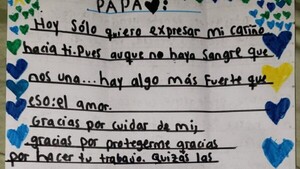 PAPA♥:
Hoy Sólo quiero expresar mi cariño
hacia ti. Pues auque no haya Sangre que
nos una...hay algo más Fuerte que
eso: el amor.
Gracias por cuidar de mi,
gracias por protegerme gracias
por hacer tu trabajo. quizás las